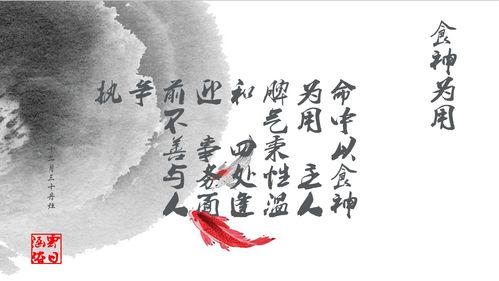 食神为用
命中以食神
为用 主人
脾气秉性温
和 四处逢
迎 事务面
前不善与人
争
执
十二月三十